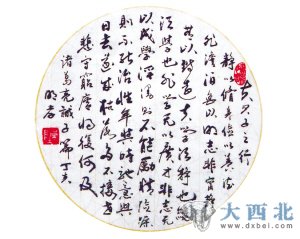 夫君子之行
静以修身俭以养德
非澹泊无以明志非宁静
无以致远夫学须静也才
须学也非学无以广才非志无
以成学淫漫则不能励精险躁
则不能治性年与时驰意与
日去遂成枯落多不接世
悲守穷庐将复何及
诸葛亮诫子书丁亥
大西北
www.dxbei.com